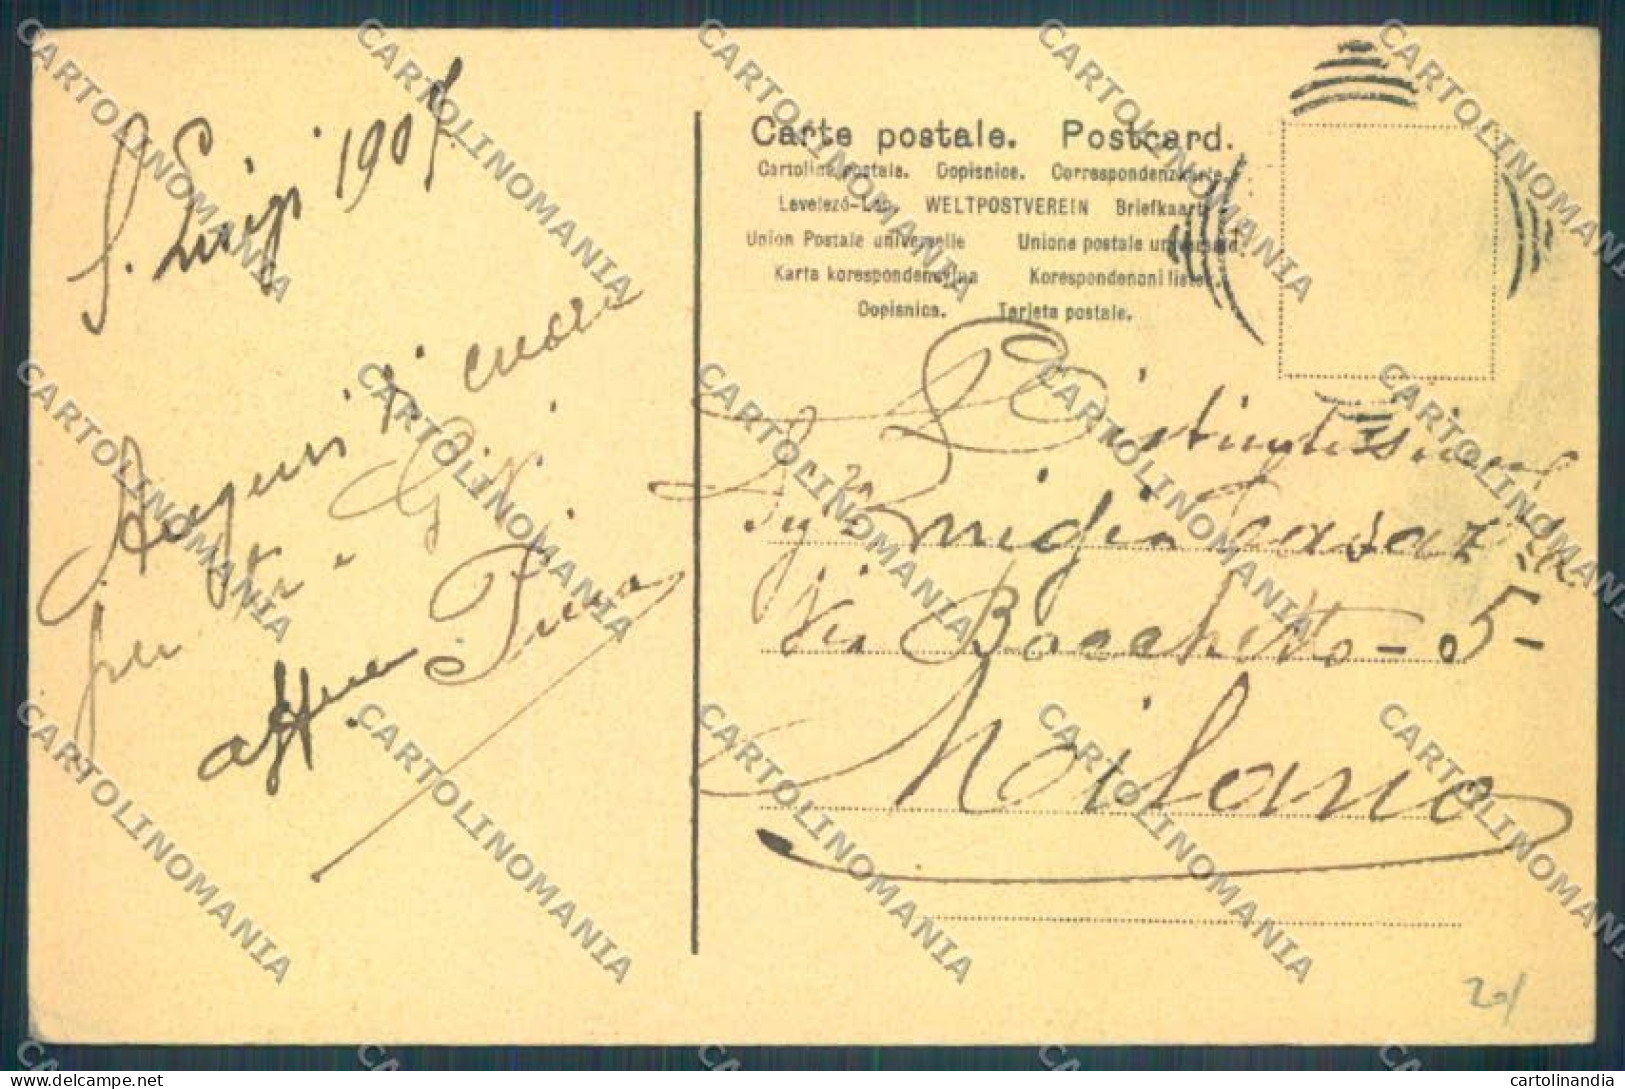 S. Luigi 1907.
Auguri di cuore
per
affma Piera
Carte postale. Postcard.
Cartolina postale. Dopisnice. Correspondenzkarte.
Levelező-Lap. WELTPOSTVEREIN Briefkaart.
Union Postale universelle Unione postale universale.
Karta korespondencyjna Korespondencni listek.
Dopisnica. Tarjeta postale.
Distintissima
Sigra Luigia Casazza
Via Bocchetto - 5 -
Milano
20/
CARTOLINOMANIA
www.delcampe.net
cartolinandia